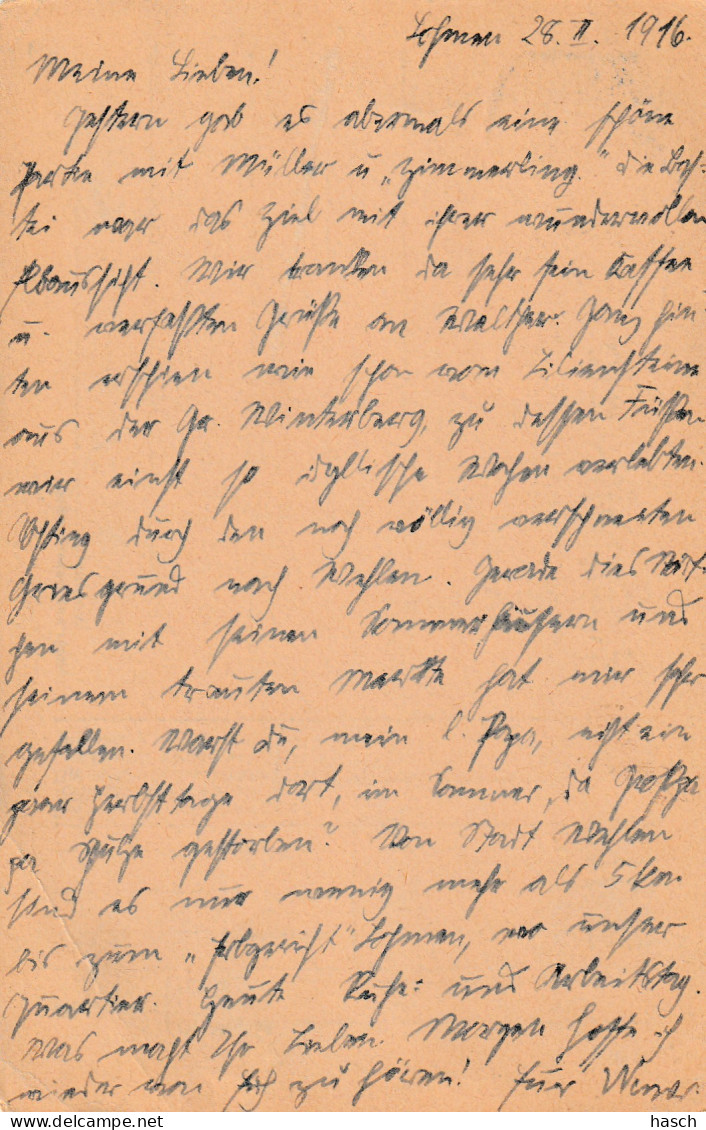 Lohmen 28. II. 1916.
Meine Lieben!
Gestern gab es abermals eine schöne
Partie mit Müller u. „Zimmerling." Die Bas-
tei war das Ziel mit ihrer wundervollen
Elbaussicht. Wir tranken da sehr fein Kaffee
u. verfassten Grüße an Walther. Ganz hin-
ten erschien wie schon vom Liliensteine
aus der Gr. Winterberg, zu dessen Füßen
wir einst so idyllische Wochen verlebten.
Abstieg durch den noch völlig verschneiten
Griesgrund nach Wehlen. Gerade dies Städt-
chen mit seinen Sommerhäusern und
seinem trauten Markte hat mir sehr
gefallen. Warst du, mein l. Papa, nicht ein
paar Herbsttage dort, im Sommer, da Großpa-
pa gestorben? Von Stadt Wehlen
sind es nur wenig mehr als 5 km
bis zum „Erbgericht" Lohmen, wo unser
Quartier. Heute Ruhe- und Arbeitstag.
Was macht Ihr Lieben. Morgen hoffe ich
wieder von Euch zu hören! Für
hasch